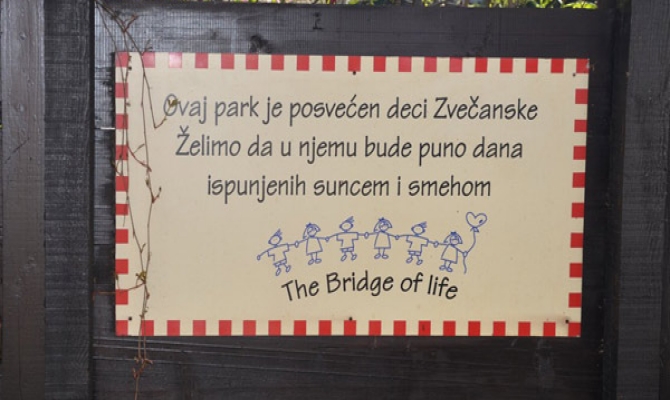 Ovaj park je posvećen deci Zvečanske
Želimo da u njemu bude puno dana
ispunjenih suncem i smehom
The Bridge of life